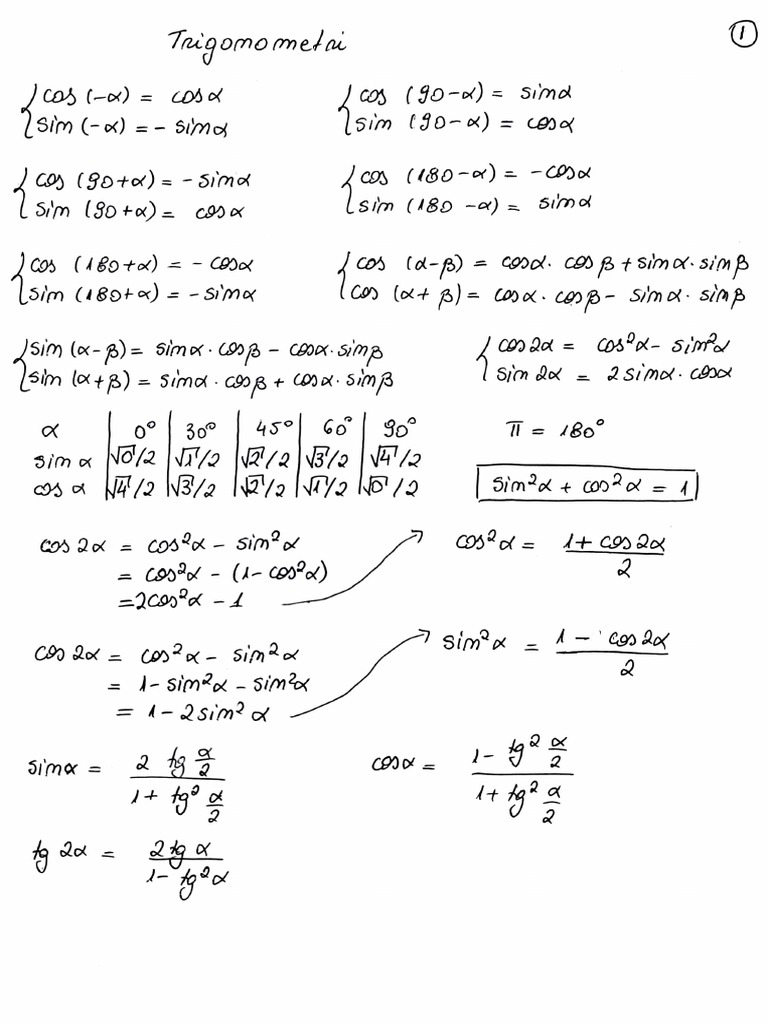 Trigonometri
1
cos (-α) = cosα
sin (-α) = - sinα
cos (90-α) = sinα
sin (90-α) = cosα
cos (90+α) = - sinα
sin (90+α) = cosα
cos (180-α) = -cosα
sin (180-α) = sinα
cos (180+α) = - cosα
sin (180+α) = - sinα
cos (α-β) = cosα · cosβ + sinα · sinβ
cos (α+β) = cosα · cosβ - sinα · sinβ
sin (α-β) = sinα · cosβ - cosα · sinβ
sin (α+β) = sinα · cosβ + cosα · sinβ
cos2α = cos²α - sin²α
sin 2α = 2 sinα · cosα
α | 0° | 30° | 45° | 60° | 90°
sin α | √0/2 | √1/2 | √2/2 | √3/2 | √4/2
cos α | √4/2 | √3/2 | √2/2 | √1/2 | √0/2
π = 180°
sin²α + cos²α = 1
cos 2α = cos²α - sin²α
= cos²α - (1-cos²α)
= 2cos²α - 1
cos²α = (1 + cos2α)/2
cos 2α = cos²α - sin²α
= 1 - sin²α - sin²α
= 1 - 2 sin²α
sin²α = (1 - cos2α)/2
sinα = (2 tg α/2)/(1 + tg² α/2)
cosα = (1 - tg² α/2)/(1 + tg² α/2)
tg 2α = (2 tg α)/(1 - tg²α)